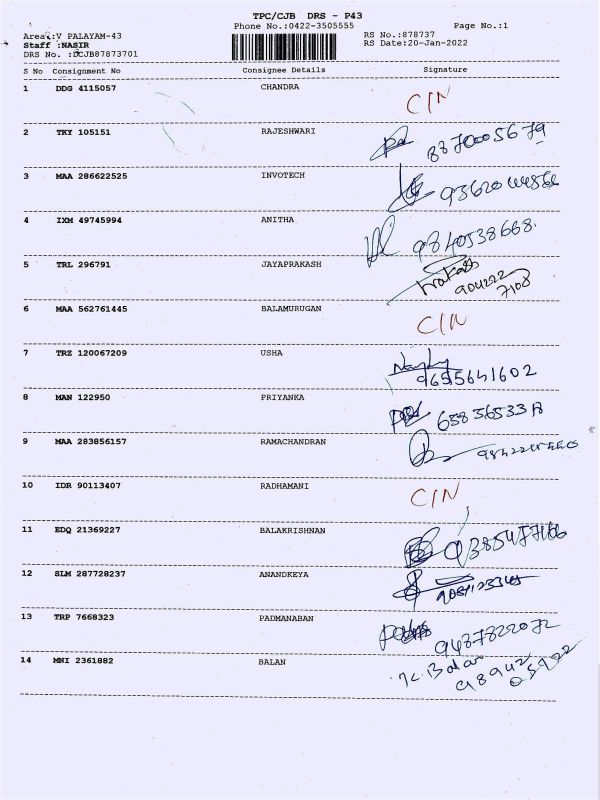 TPC/CJB DRS - P43
Phone No.:0422-3505555 Page No.:1
Area:V PALAYAM-43 RS No.:878737
Staff :NASIR RS Date:20-Jan-2022
DRS No. :DCJB87873701
S No Consignment No Consignee Details Signature
1 DDG 4115057 CHANDRA C/N
2 TKY 105151 RAJESHWARI 8870005679
3 MAA 286622525 INVOTECH
4 IXM 49745994 ANITHA 9840538668.
5 TRL 296791 JAYAPRAKASH 904222
7108
6 MAA 562761445 BALAMURUGAN C/N
7 TRZ 120067209 USHA 9655641602
8 MAN 122950 PRIYANKA
9 MAA 283856157 RAMACHANDRAN
10 IDR 90113407 RADHAMANI C/N
11 EDQ 21369227 BALAKRISHNAN
12 SLM 287728237 ANANDKEYA
13 TRP 7668323 PADMANABAN
14 MNI 2361882 BALAN K. Balan